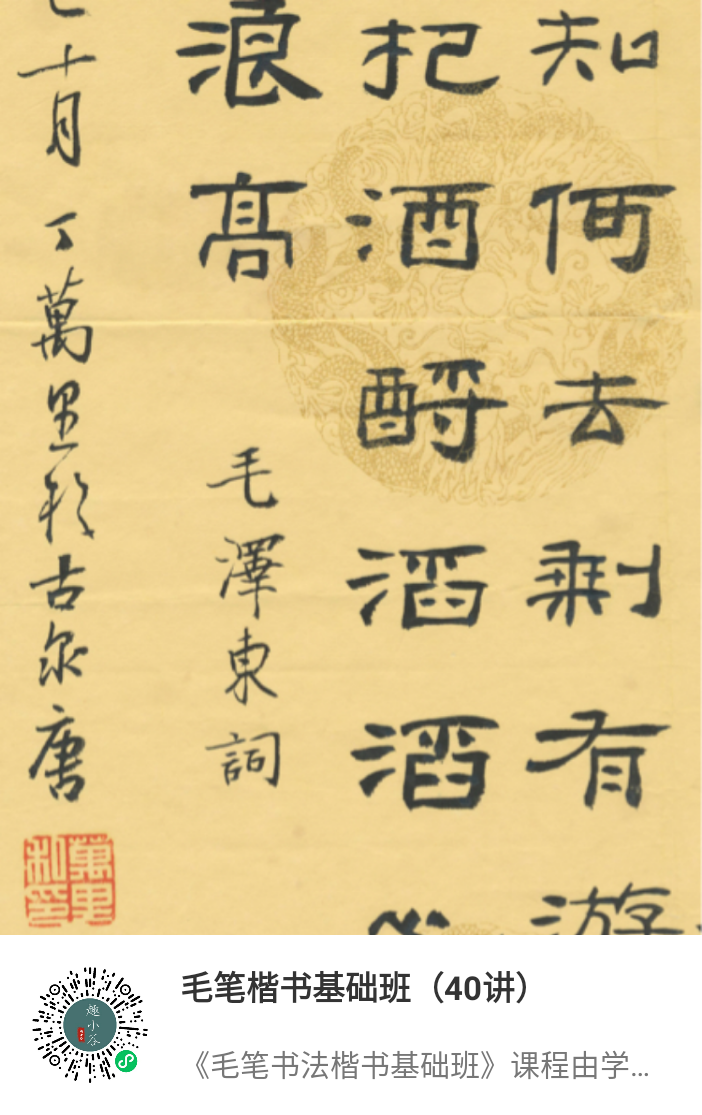 知何去剩有游
把酒酹滔滔
浪高
毛澤東詞
十月 丁萬里於古泉唐
毛笔楷书基础班（40讲）
《毛笔书法楷书基础班》课程由学...
趣小谷